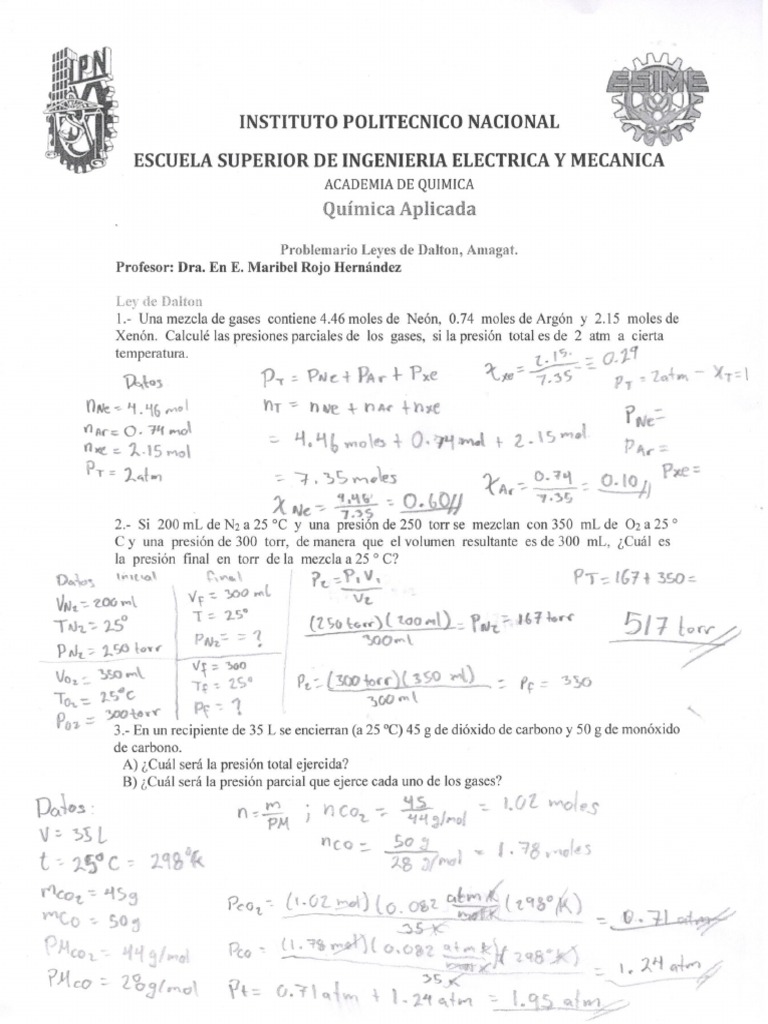 IPN
ESIME
INSTITUTO POLITECNICO NACIONAL
ESCUELA SUPERIOR DE INGENIERIA ELECTRICA Y MECANICA
ACADEMIA DE QUIMICA
Química Aplicada
Problemario Leyes de Dalton, Amagat.
Profesor: Dra. En E. Maribel Rojo Hernández
Ley de Dalton
1.- Una mezcla de gases contiene 4.46 moles de Neón, 0.74 moles de Argón y 2.15 moles de
Xenón. Calculé las presiones parciales de los gases, si la presión total es de 2 atm a cierta
temperatura.
Datos
nNe = 4.46 mol
nAr = 0.74 mol
nxe = 2.15 mol
PT = 2atm
PT = PNe + PAr + Pxe
nT = nNe + nAr + nxe
= 4.46 moles + 0.74 mol + 2.15 mol
= 7.35 moles
XNe = 4.46/7.35 = 0.60
Xxe = 2.15/7.35 = 0.29
PT = 2atm - XT=1
PNe=
PAr =
Pxe =
XAr = 0.74/7.35 = 0.10
2.- Si 200 mL de N2 a 25 °C y una presión de 250 torr se mezclan con 350 mL de O2 a 25 °
C y una presión de 300 torr, de manera que el volumen resultante es de 300 mL, ¿Cuál es
la presión final en torr de la mezcla a 25 ° C?
Datos Inicial
VN2 = 200ml
TN2 = 25°
PN2 = 250 torr
VO2 = 350ml
TO2 = 25°C
PO2 = 300torr
final
Vf = 300 ml
T = 25°
PN2 = = ?
Vf = 300
Tf = 25°
Pf = ?
P2 = P1 V1/V2
(250 torr)(200ml)/300ml = PN2 = 167 torr
P2 = (300torr)(350 ml)/300ml = Pf = 350
PT = 167 + 350 =
517 torr
3.- En un recipiente de 35 L se encierran (a 25 °C) 45 g de dióxido de carbono y 50 g de monóxido
de carbono.
A) ¿Cuál será la presión total ejercida?
B) ¿Cuál será la presión parcial que ejerce cada uno de los gases?
Datos:
V = 35 L
t = 25°C = 298°K
mCO2 = 45g
mCO = 50g
PMCO2 = 44 g/mol
PMCO = 28g/mol
n = m/PM ; nCO2 = 45/44g/mol = 1.02 moles
nCO = 50 g/28 g/mol = 1.78 moles
PCO2 = (1.02 mol)(0.082 atm K/mol K)(298°K)/35 = 0.71 atm
PCO = (1.78 mol)(0.082 atm K/mol K)(298°K)/35 = 1.24 atm
Pt = 0.71atm + 1.24 atm = 1.95 atm